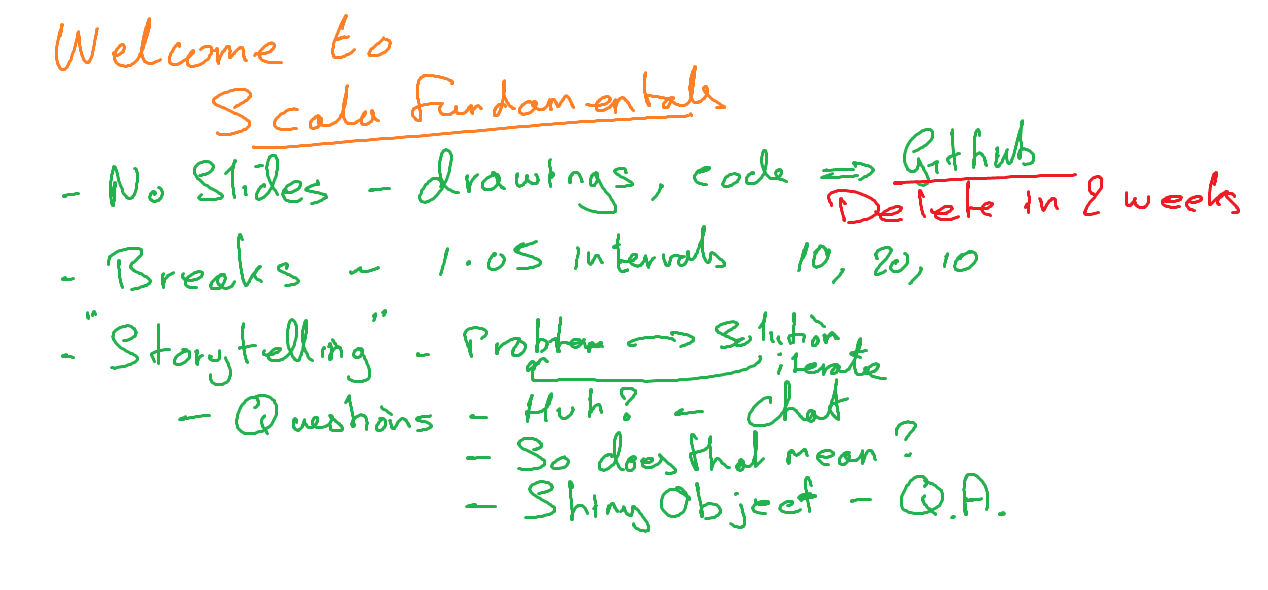 Welcome to
Scala Fundamentals
- No Slides - drawings, code => Github
Delete in 2 weeks
- Breaks ~ 1.05 intervals 10, 20, 10
- "Storytelling" - Problem -> Solution
iterate
- Questions - Huh? - Chat
- So does that mean?
- Shiny Object - Q.A.